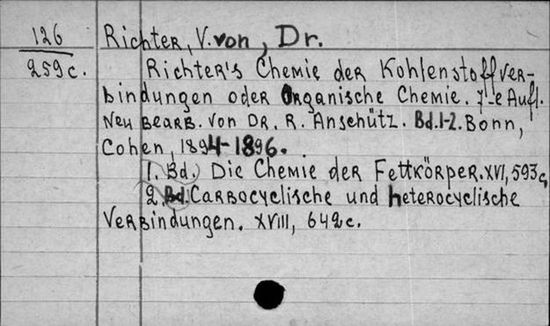 126 Richter, V. von, Dr.
259c. Richter's Chemie der Kohlenstoffver-
bindungen oder Organische Chemie. 7-e Aufl.
Neu bearb. von Dr. R. Anschütz. Bd. 1-2. Bonn,
Cohen, 1894-1896.
1. Bd. Die Chemie der Fettkörper. XVI, 593c,
2. Bd. Carbocyclische und heterocyclische
Verbindungen. XVIII, 642c.